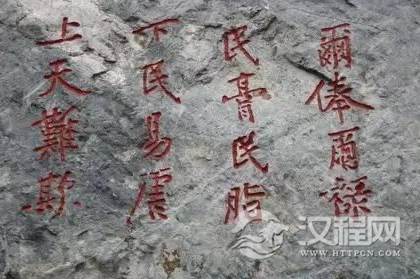 爾俸爾祿
民膏民脂
下民易虐
上天難欺
汉程网
WWW.HTTPCN.COM